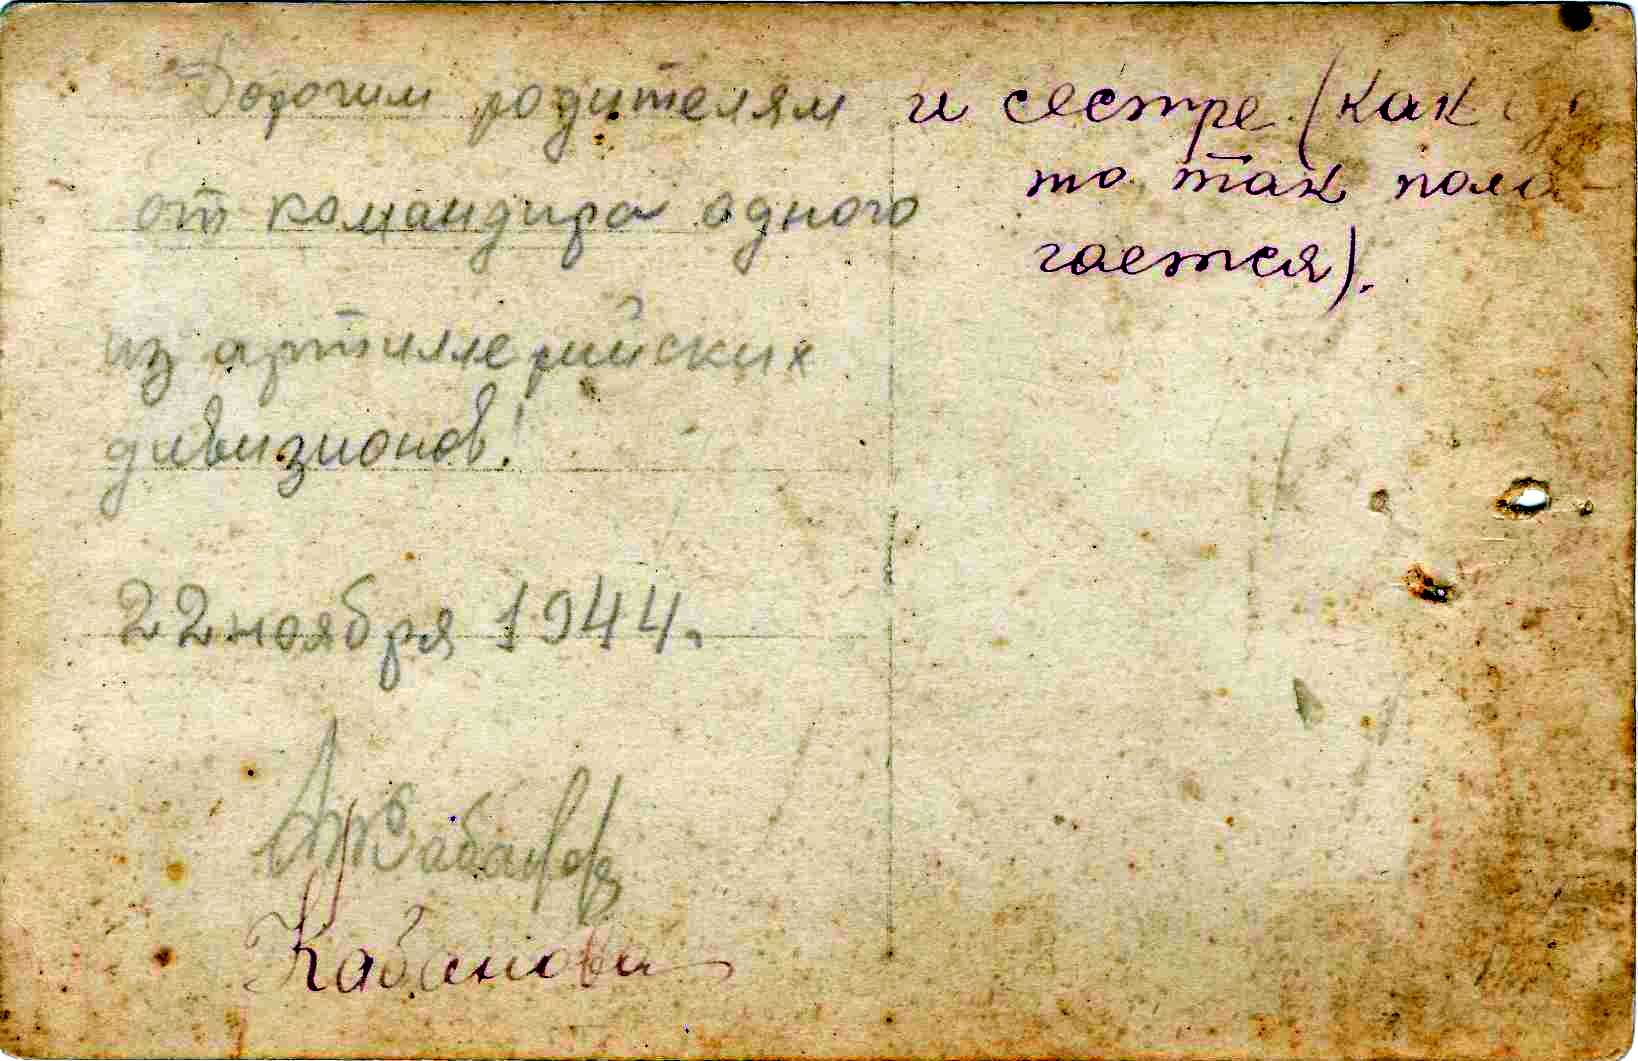 Дорогим родителям и сестре (как
то так пола-
гается).
от командира одного
из артиллерийских
дивизионов!
22 ноября 1944.
Кабанова